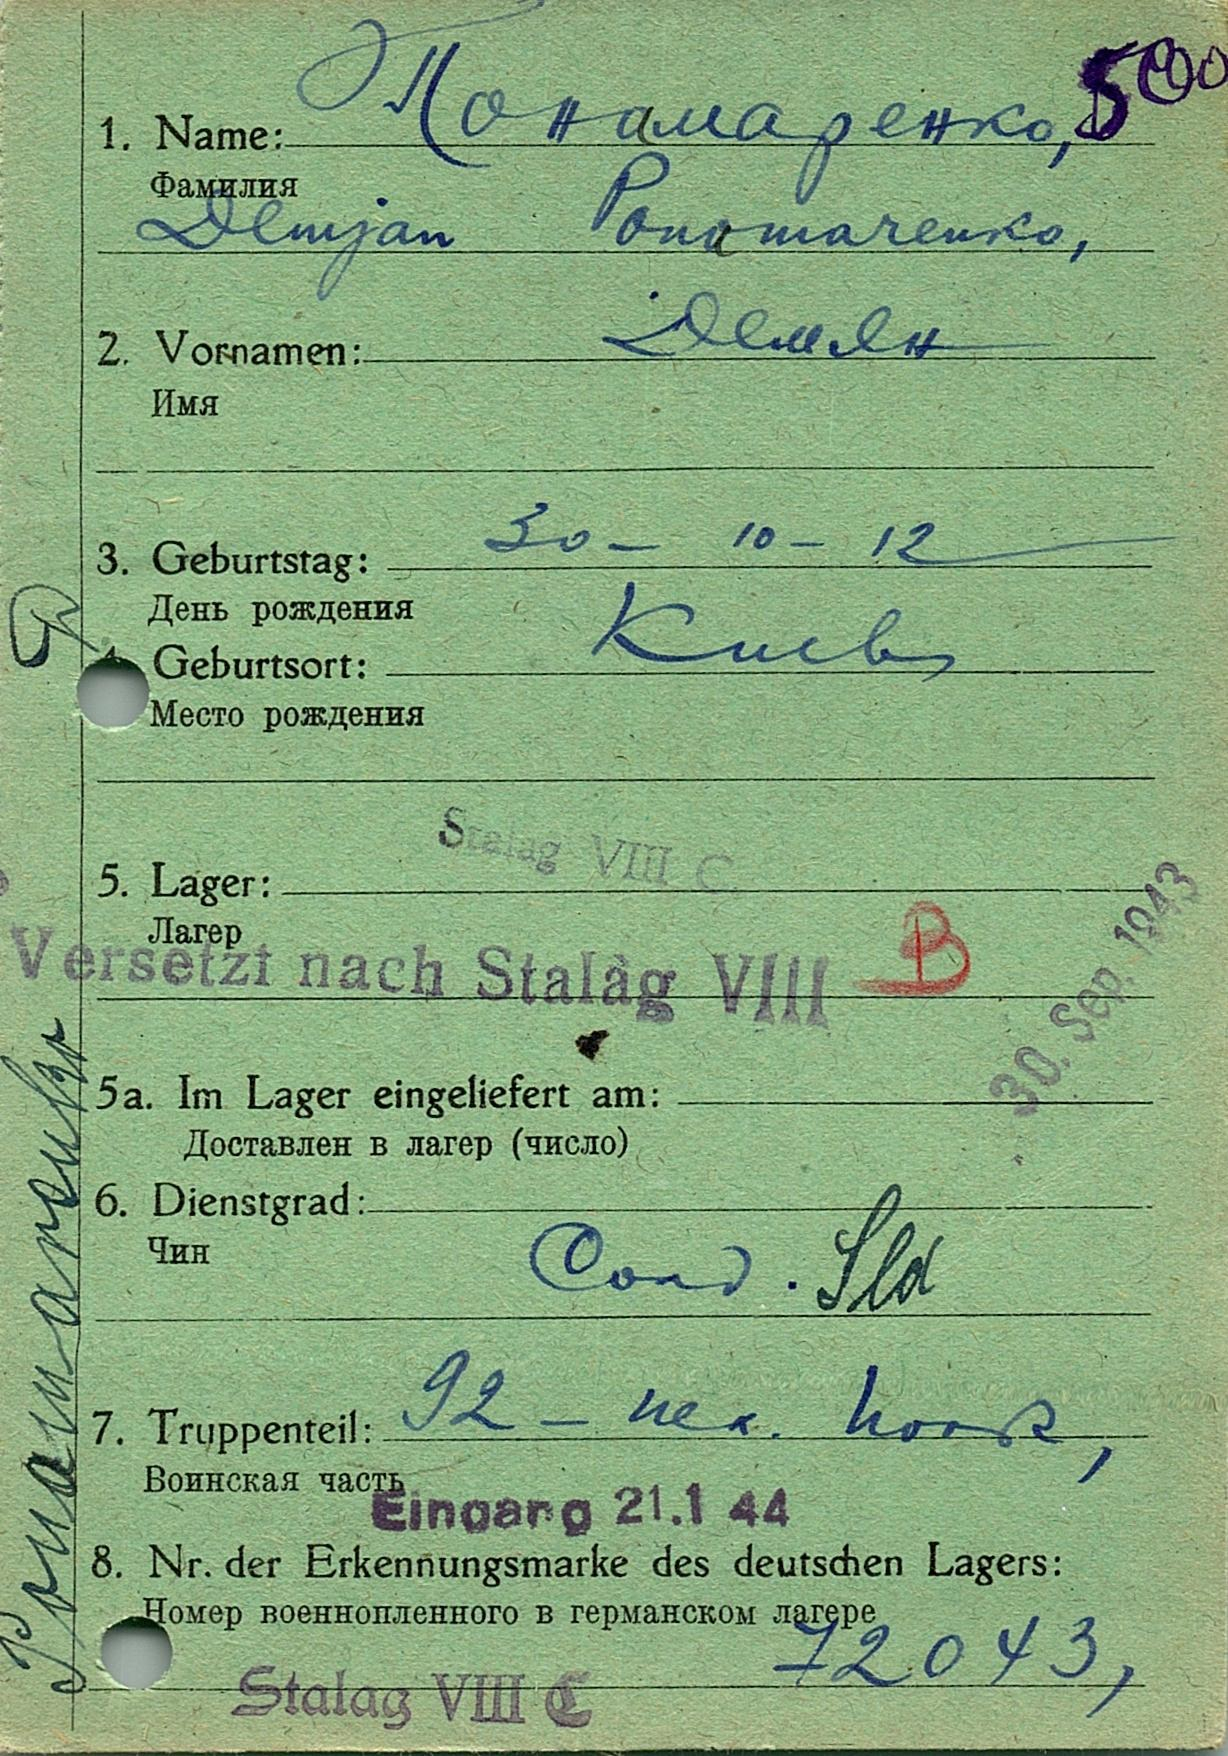 500
1. Name: Понамаренко,
Фамилия
Demjan Ponomarenko,
2. Vornamen: Демян
Имя
3. Geburtstag: 30 - 10 - 12
День рождения
4. Geburtsort: Киев,
Место рождения
Stalag VIII C
5. Lager:
Лагер
Versetzt nach Stalag VIII B
30. Sep. 1943
5a. Im Lager eingeliefert am:
Доставлен в лагер (число)
6. Dienstgrad:
Чин
Солд. Sld
7. Truppenteil: 92 - пех.
Воинская часть
Eingang 21.1 44
8. Nr. der Erkennungsmarke des deutschen Lagers:
Номер военнопленного в германском лагере
72043,
Stalag VIII C
Ponamarenko